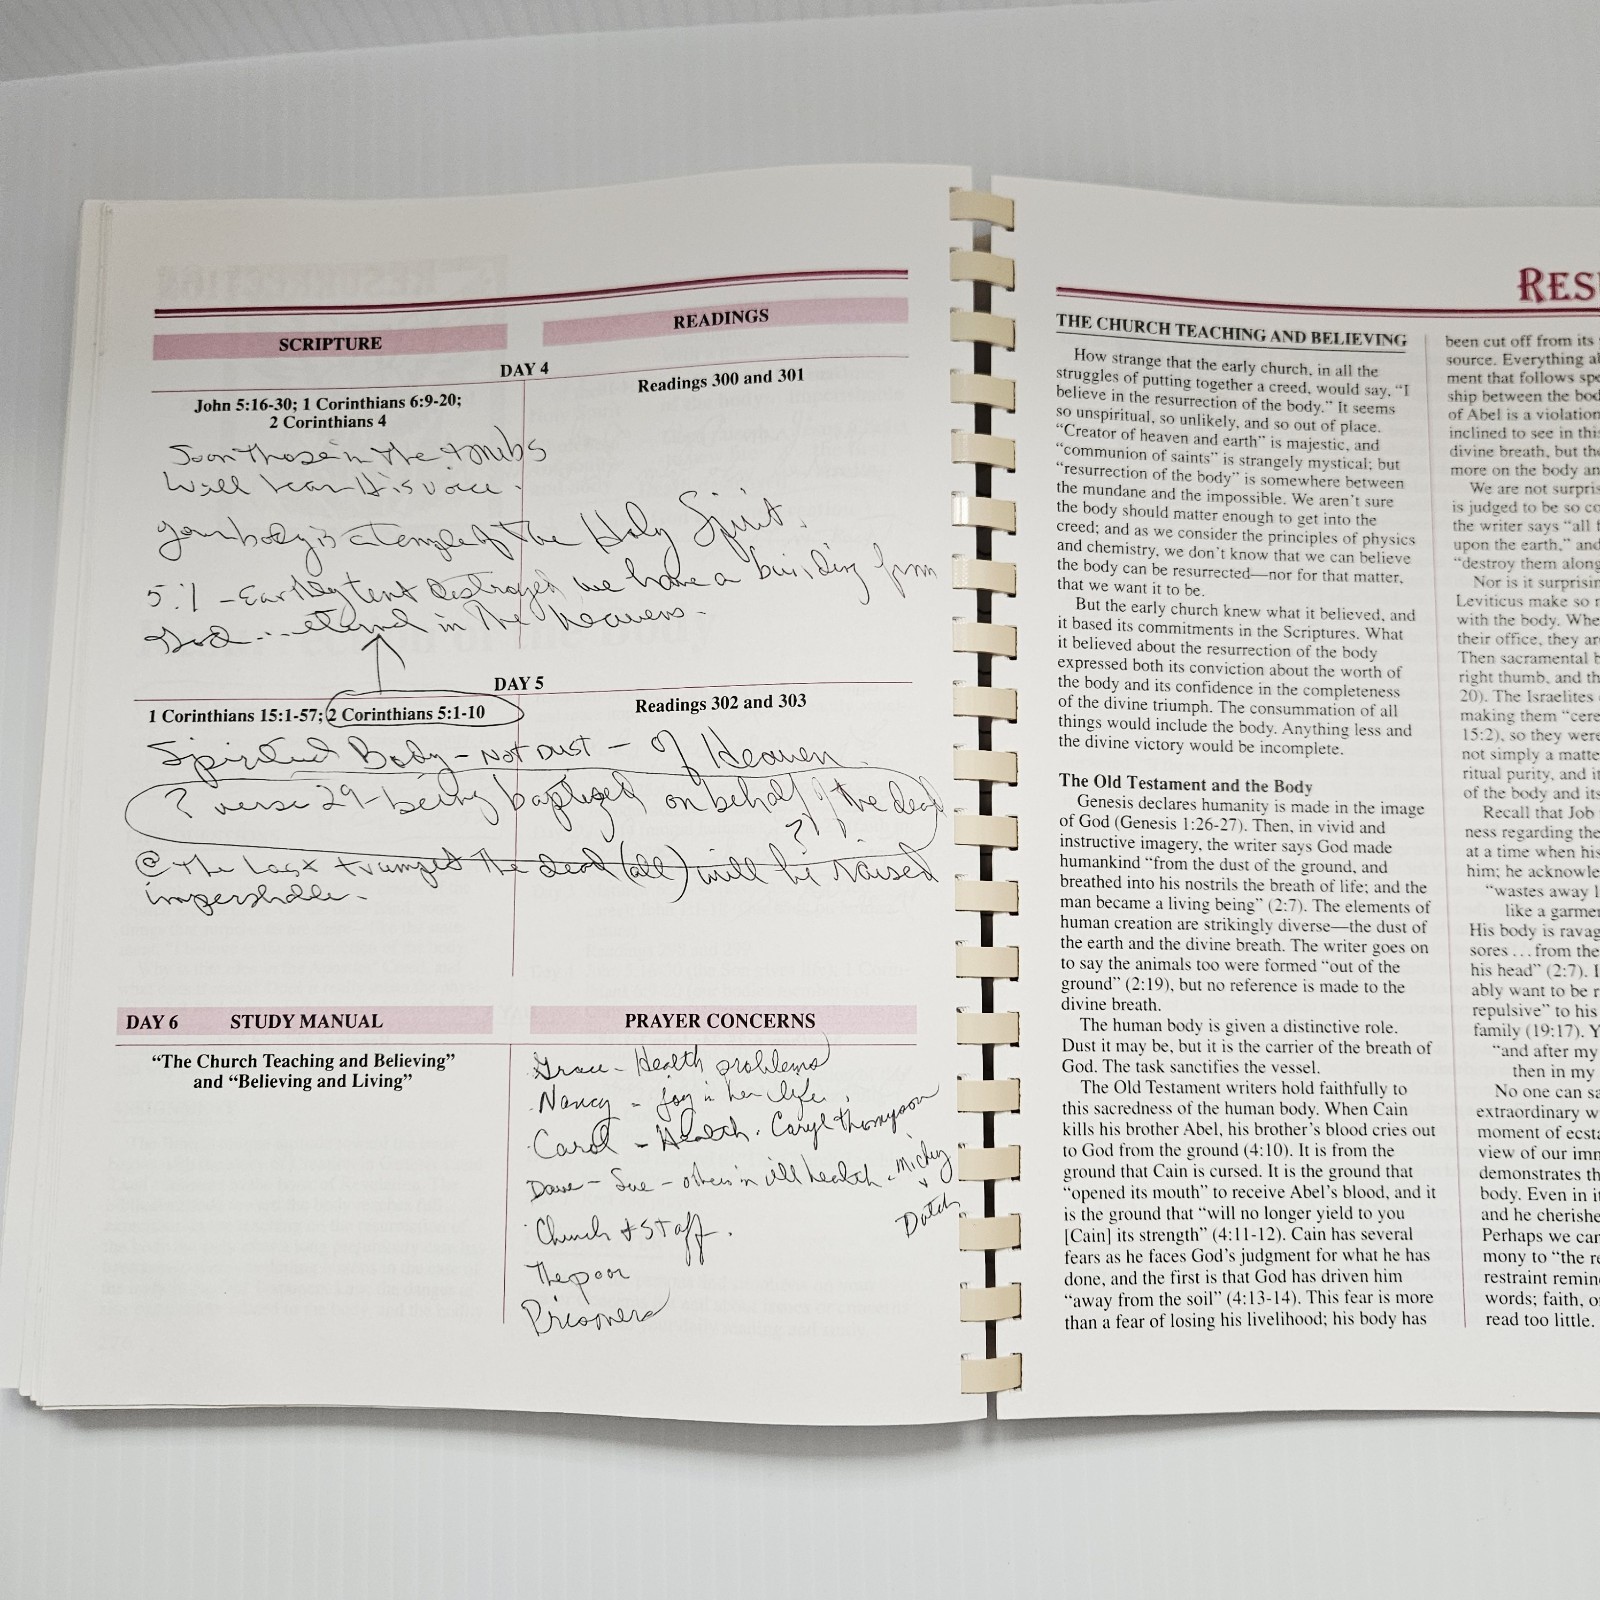 SCRIPTURE
READINGS
DAY 4
John 5:16-30; 1 Corinthians 6:9-20;
2 Corinthians 4
Readings 300 and 301
Soon those in the tombs
will hear His voice.
your body is a temple of the Holy Spirit.
5:1 - Earthly tent destroyed we have a building from
God ... eternal in the heavens.
DAY 5
1 Corinthians 15:1-57; 2 Corinthians 5:1-10
Readings 302 and 303
Spiritual Body - NOT DUST - of Heaven
? verse 29 - being baptized on behalf of the dead
?!!
@ the last trumpet the dead (all) will be raised
imperishable.
DAY 6 STUDY MANUAL
"The Church Teaching and Believing"
and "Believing and Living"
PRAYER CONCERNS
Grace - Health problems
Nancy - joy in her life.
Carol - Health. Caryl Thompson
Dave - Sue - others in ill health. Micky
Dutch
Church & Staff.
The poor
Prisoners
RESU
THE CHURCH TEACHING AND BELIEVING
How strange that the early church, in all the
struggles of putting together a creed, would say, "I
believe in the resurrection of the body." It seems
so unspiritual, so unlikely, and so out of place.
"Creator of heaven and earth" is majestic, and
"communion of saints" is strangely mystical; but
"resurrection of the body" is somewhere between
the mundane and the impossible. We aren't sure
the body should matter enough to get into the
creed; and as we consider the principles of physics
and chemistry, we don't know that we can believe
the body can be resurrected—nor for that matter,
that we want it to be.
But the early church knew what it believed, and
it based its commitments in the Scriptures. What
it believed about the resurrection of the body
expressed both its conviction about the worth of
the body and its confidence in the completeness
of the divine triumph. The consummation of all
things would include the body. Anything less and
the divine victory would be incomplete.
The Old Testament and the Body
Genesis declares humanity is made in the image
of God (Genesis 1:26-27). Then, in vivid and
instructive imagery, the writer says God made
humankind "from the dust of the ground, and
breathed into his nostrils the breath of life; and the
man became a living being" (2:7). The elements of
human creation are strikingly diverse—the dust of
the earth and the divine breath. The writer goes on
to say the animals too were formed "out of the
ground" (2:19), but no reference is made to the
divine breath.
The human body is given a distinctive role.
Dust it may be, but it is the carrier of the breath of
God. The task sanctifies the vessel.
The Old Testament writers hold faithfully to
this sacredness of the human body. When Cain
kills his brother Abel, his brother's blood cries out
to God from the ground (4:10). It is from the
ground that Cain is cursed. It is the ground that
"opened its mouth" to receive Abel's blood, and it
is the ground that "will no longer yield to you
[Cain] its strength" (4:11-12). Cain has several
fears as he faces God's judgment for what he has
done, and the first is that God has driven him
"away from the soil" (4:13-14). This fear is more
than a fear of losing his livelihood; his body has
been cut off from its
source. Everything
ment that follows
ship between the
of Abel is a violation
inclined to see in this
divine breath, but
more on the body
We are not
is judged to be so
the writer says "all
upon the earth," and
"destroy them along
Nor is it
Leviticus make so
with the body.
their office, they
Then sacramental
right thumb, and
20). The Israelites
making them
15:2), so they were
not simply a
ritual purity, and
of the body and its
Recall that Job
ness regarding the
at a time when his
him; he
"wastes away
like a
His body is
sores ... from the
his head" (2:7).
ably want to be
repulsive" to his
family (19:17).
"and after my
then in my
No one can
extraordinary
moment of
view of our
demonstrates
body. Even in
and he
Perhaps we can
mony to "the
restraint
words; faith,
read too little.